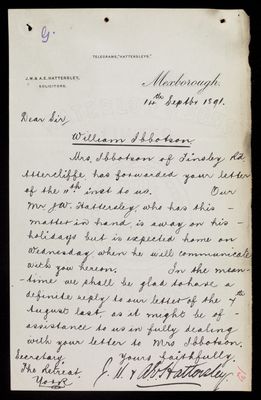 G.
TELEGRAMS, "HATTERSLEYS."
J.W. & A.E. HATTERSLEY,
SOLICITORS.
Mexborough,
14th Septbr 1891.
Dear Sir,
William Ibbotson
Mrs. Ibbotson of Tinsley Rd.
Attercliffe has forwarded your letter
of the 11th inst to us. Our
Mr J.W. Hattersley who has this -
- matter in hand is away on his -
- holidays but is expected home on
Wednesday when he will communicate
with you hereon. In the mean-
- time we shall be glad to have a
definite reply to our letter of the 7th
August last, as it might be of -
- assistance to us in fully dealing
with your letter to Mrs Ibbotson.
Yours faithfully,
J. W. & A.E. Hattersley.
Secretary.
The Retreat
York